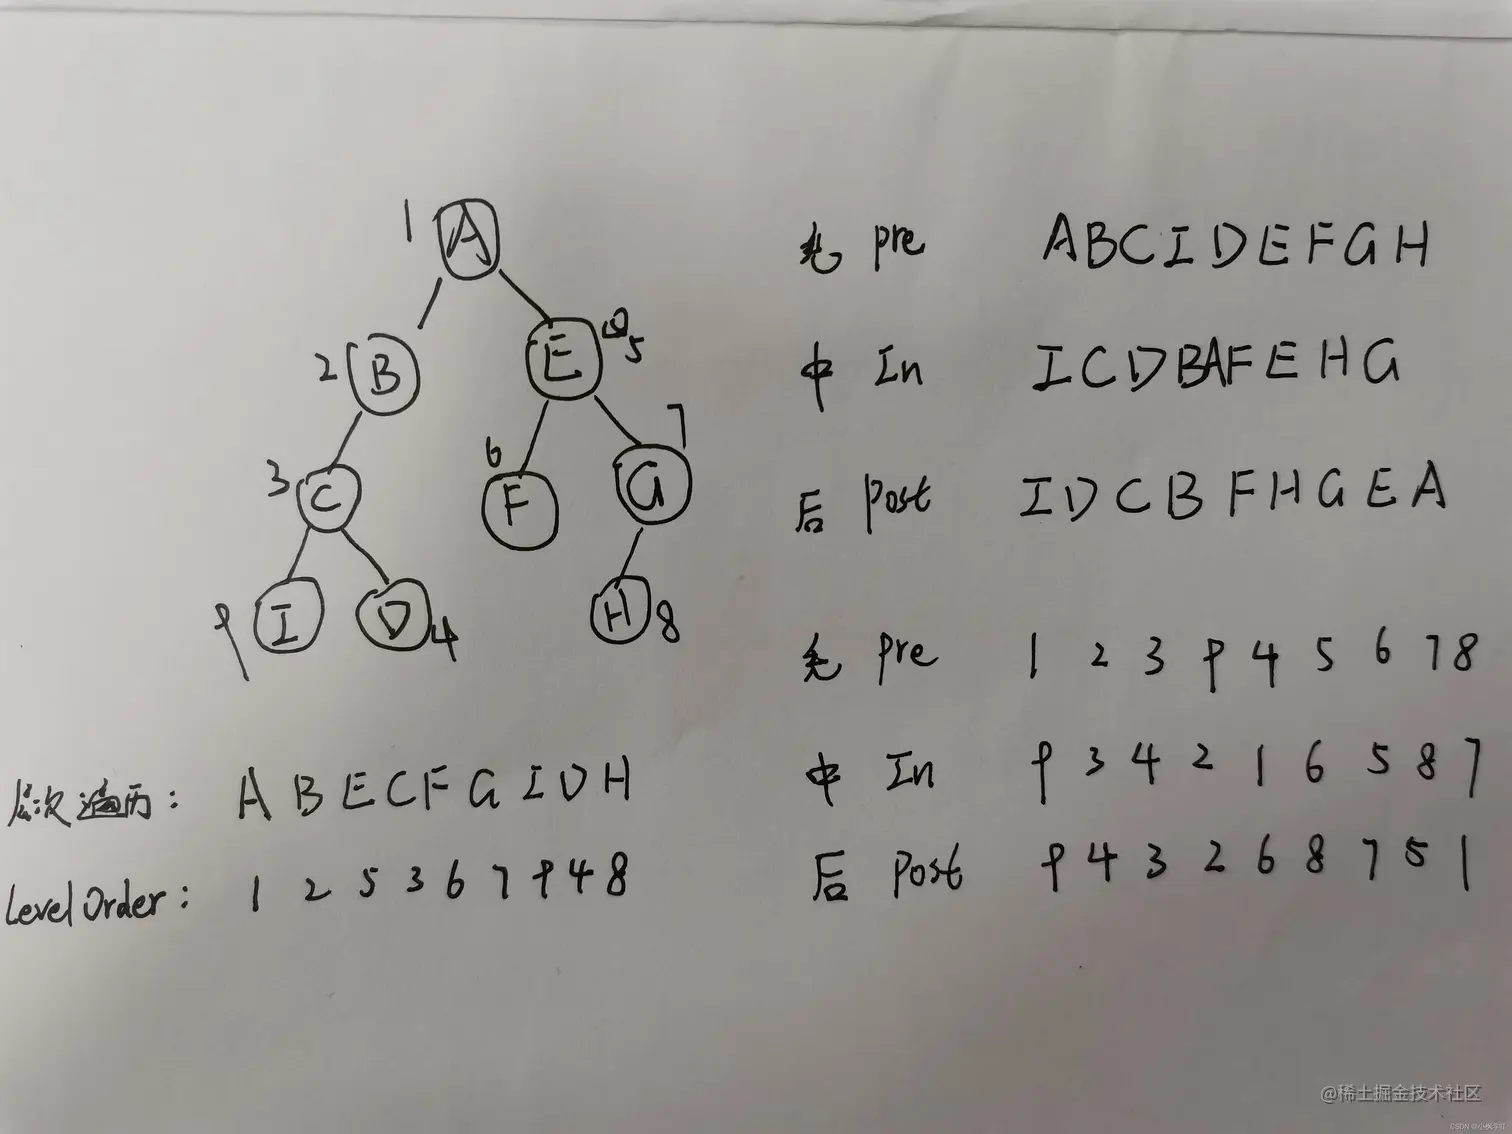 1 A
2 B E 5
3 C 6 F G 7
9 I D 4 H 8
先 pre A B C I D E F G H
中 In I C D B A F E H G
后 post I D C B F H G E A
先 pre 1 2 3 9 4 5 6 7 8
中 In 9 3 4 2 1 6 5 8 7
后 post 9 4 3 2 6 8 7 5 1
层次遍历: A B E C F G I D H
Level Order: 1 2 5 3 6 7 9 4 8
@稀土掘金技术社区